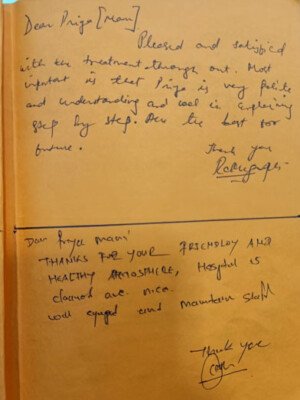 Dear Priya [Mam]
Pleased and satisfied
with the treatment through out. Most
important is that Priya is very polite
and understanding and cool in explaining
step by step. All the best for
future.
Thank you
Dear Priya Mam
THANKS FOR YOUR FRIENDLOY AND
HEALTHY ATMOSPHERE, Hospital is
nice.
well and staff
Thank you